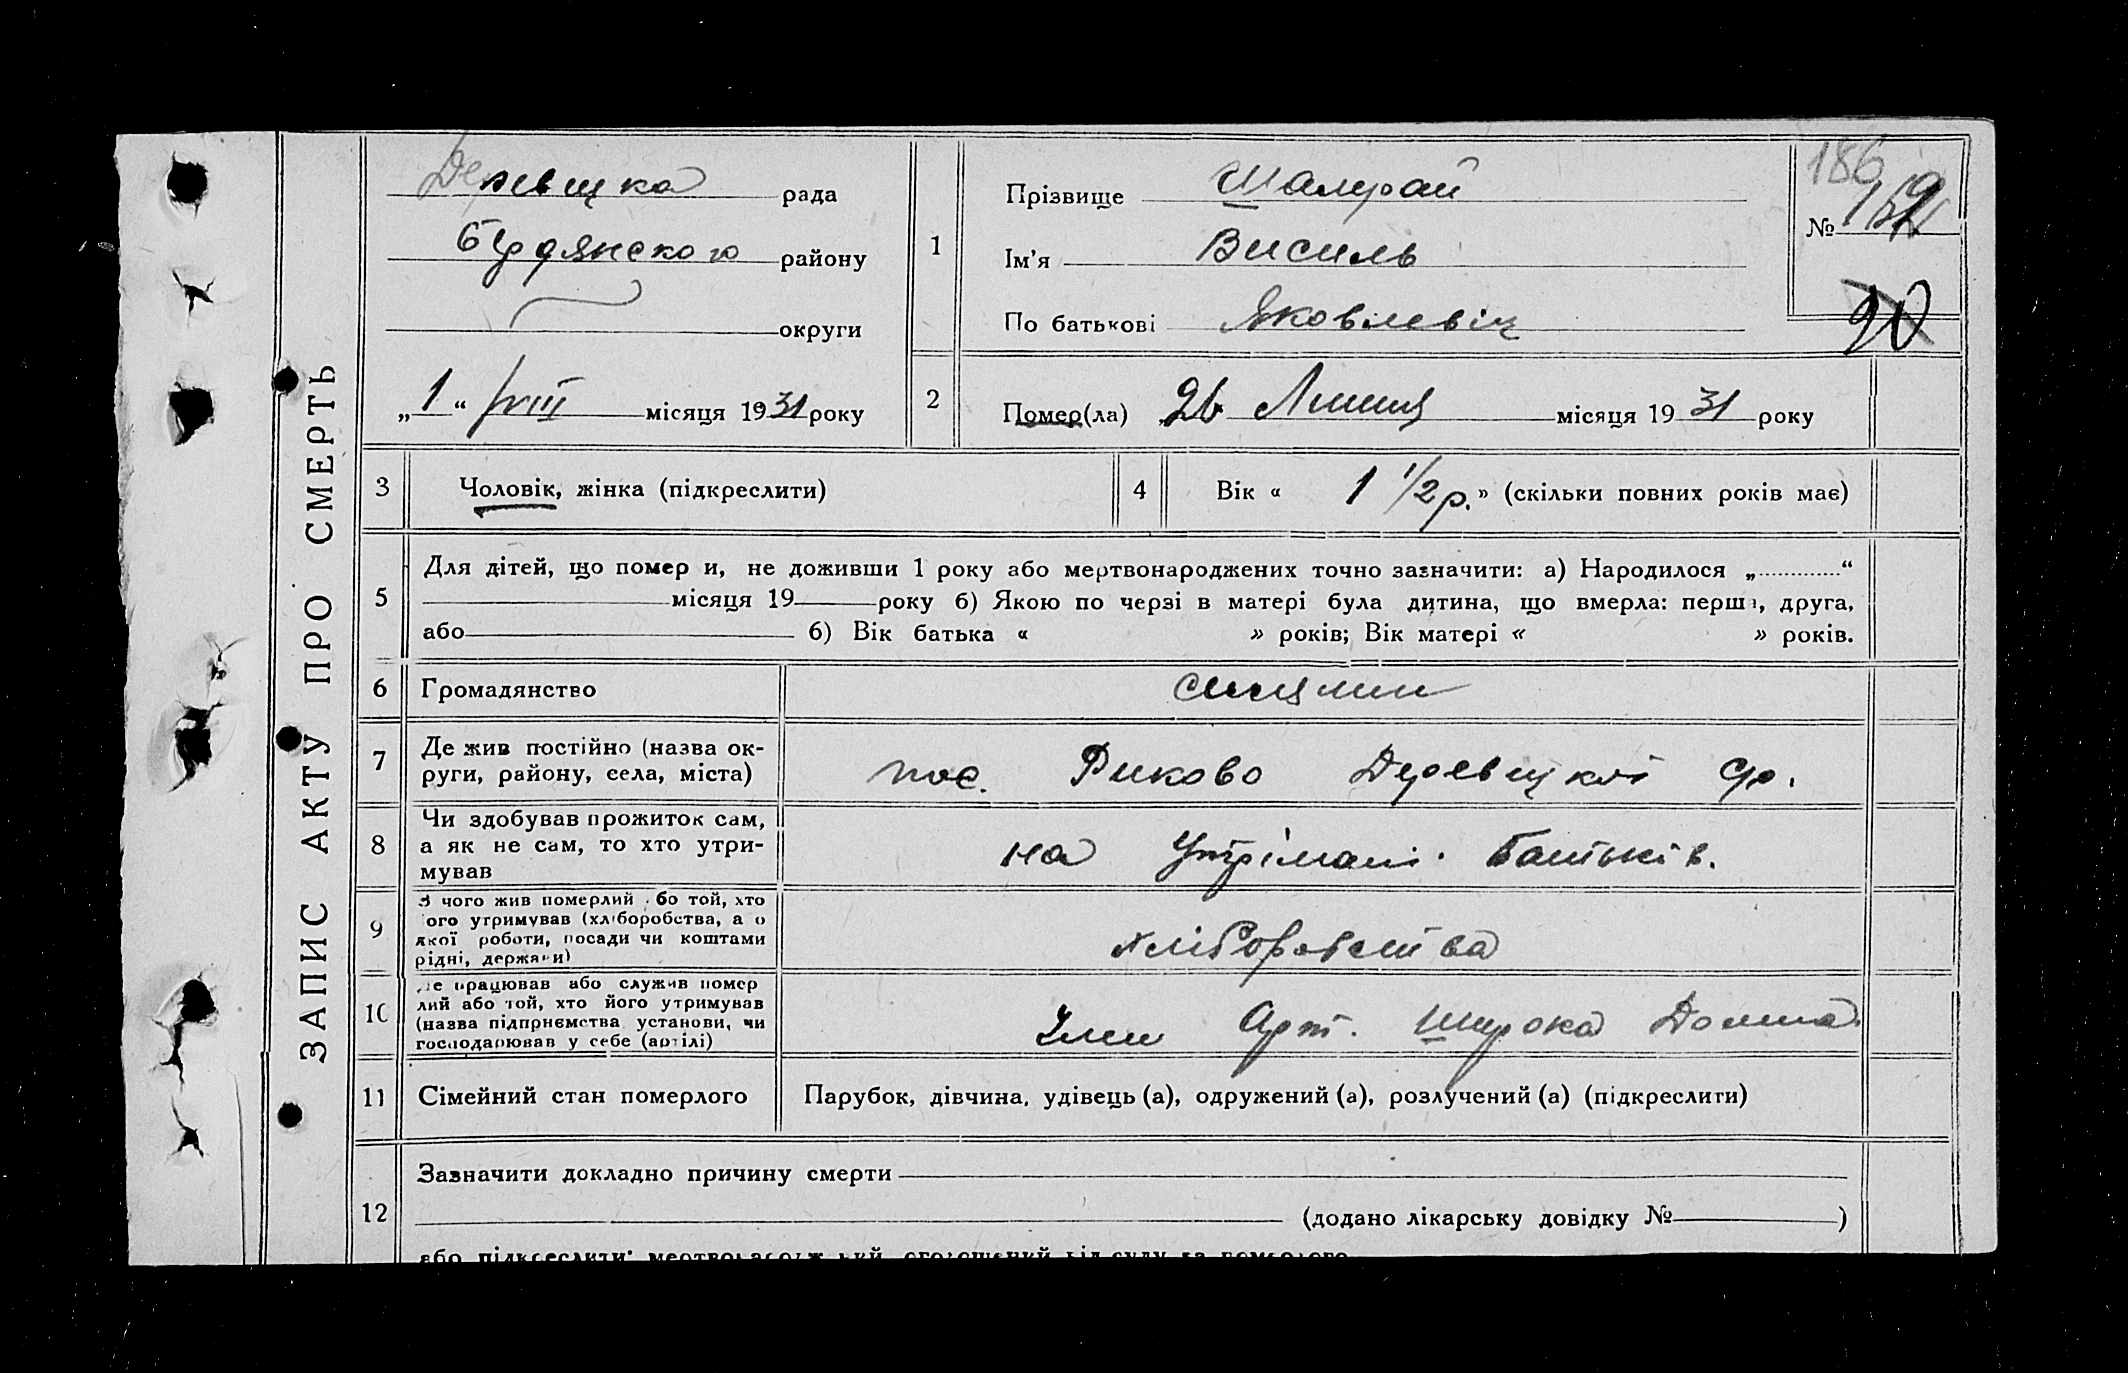 ЗАПИС АКТУ ПРО СМЕРТЬ
Деревецка рада
Бердянского району
округи
„1“ VIII місяця 1931 року
1
Прізвище Шамрай
Ім'я Василь
По батькові Яковлевіч
186
№
90
2
Помер(ла) 26 Липця місяця 1931 року
3
Чоловік, жінка (підкреслити)
4
Вік « 1 1/2 р. » (скільки повних років має)
5
Для дітей, що помер и, не доживши 1 року або мертвонароджених точно зазначити: а) Народилося „ “
місяця 19 року б) Якою по черзі в матері була дитина, що вмерла: перша, друга,
або б) Вік батька « » років; Вік матері « » років.
6
Громадянство
7
Де жив постійно (назва ок-
руги, району, села, міста)
пос. Риково Деревецкої ср.
8
Чи здобував прожиток сам,
а як не сам, то хто утри-
мував
на Утрімані Батьків.
9
З чого жив померлий або той, хто
ого утримував (хліборобства, а о
якої роботи, посади чи коштами
рідні, держави)
хліборобства
10
Де працював або служив помер
лий або той, хто його утримував
(назва підприємства установи, чи
господарював у себе (артілі)
Член Арт. Широка Долина.
11
Сімейний стан померлого
Парубок, дівчина, удівець (а), одружений (а), розлучений (а) (підкреслити)
12
Зазначити докладно причину смерти
(додано лікарську довідку № )
або підкреслити: